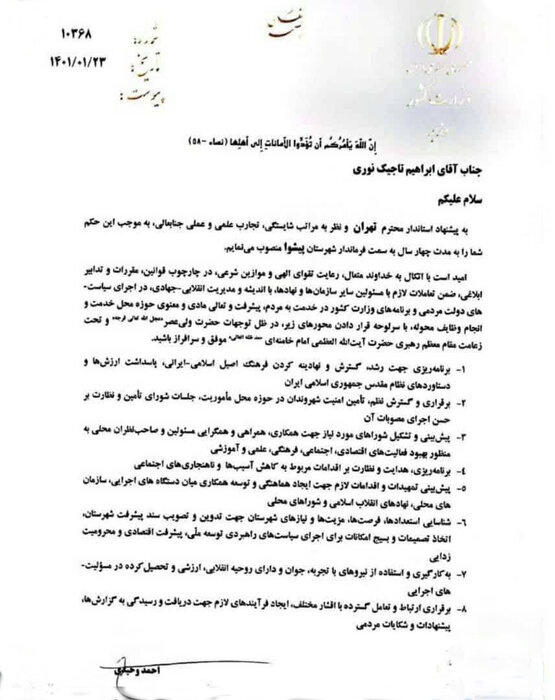 شماره: ۱۰۳۶۸
تاریخ: ۱۴۰۱/۰۱/۲۳
پیوست:
وزارت کشور
وزیر
إنّ اللهَ یَأمُرُکُم أن تُؤَدُّوا الأماناتِ إلی أهلِها (نساء -۵۸)
جناب آقای ابراهیم تاجیک نوری
سلام علیکم
به پیشنهاد استاندار محترم تهران و نظر به مراتب شایستگی، تجارب علمی و عملی جنابعالی، به موجب این حکم
شما را به مدت چهار سال به سمت فرماندار شهرستان پیشوا منصوب می‌نمایم.
امید است با اتکال به خداوند متعال، رعایت تقوای الهی و موازین شرعی، در چارچوب قوانین، مقررات و تدابیر
ابلاغی، ضمن تعاملات لازم با مسئولین سایر سازمان‌ها و نهادها، با اندیشه و مدیریت انقلابی-جهادی، در اجرای سیاست-
های دولت مردمی و برنامه‌های وزارت کشور در خدمت به مردم، پیشرفت و تعالی مادی و معنوی حوزه محل خدمت و
انجام وظایف محوله، با سرلوحه قرار دادن محورهای زیر، در ظل توجهات حضرت ولی‌عصر (عجل الله تعالی فرجه) و تحت
زعامت مقام معظم رهبری حضرت آیت‌الله العظمی امام خامنه‌ای (مدظله العالی) موفق و سرافراز باشید.
۱- برنامه‌ریزی جهت رشد، گسترش و نهادینه کردن فرهنگ اصیل اسلامی-ایرانی، پاسداشت ارزش‌ها و
دستاوردهای نظام مقدس جمهوری اسلامی ایران
۲- برقراری و گسترش نظم، تأمین امنیت شهروندان در حوزه محل مأموریت، جلسات شورای تأمین و نظارت بر
حسن اجرای مصوبات آن
۳- پیش‌بینی و تشکیل شوراهای مورد نیاز جهت همکاری، همراهی و همگرایی مسئولین و صاحب‌نظران محلی به
منظور بهبود فعالیت‌های اقتصادی، اجتماعی، فرهنگی، علمی و آموزشی
۴- برنامه‌ریزی، هدایت و نظارت بر اقدامات مربوط به کاهش آسیب‌ها و ناهنجاری‌های اجتماعی
۵- پیش‌بینی تمهیدات و اقدامات لازم جهت ایجاد هماهنگی و توسعه همکاری میان دستگاه های اجرایی، سازمان
های محلی، نهادهای انقلاب اسلامی و شوراهای محلی
۶- شناسایی استعدادها، فرصت‌ها، مزیت‌ها و نیازهای شهرستان جهت تدوین و تصویب سند پیشرفت شهرستان،
اتخاذ تصمیمات و بسیج امکانات برای اجرای سیاست‌های راهبردی توسعه ملّی، پیشرفت اقتصادی و محرومیت
زدایی
۷- به‌کارگیری و استفاده از نیروهای با تجربه، جوان و دارای روحیه انقلابی، ارزشی و تحصیل‌کرده در مسؤلیت-
های اجرایی
۸- برقراری ارتباط و تعامل گسترده با اقشار مختلف، ایجاد فرآیندهای لازم جهت دریافت و رسیدگی به گزارش‌ها،
پیشنهادات و شکایات مردمی
احمد وحیدی